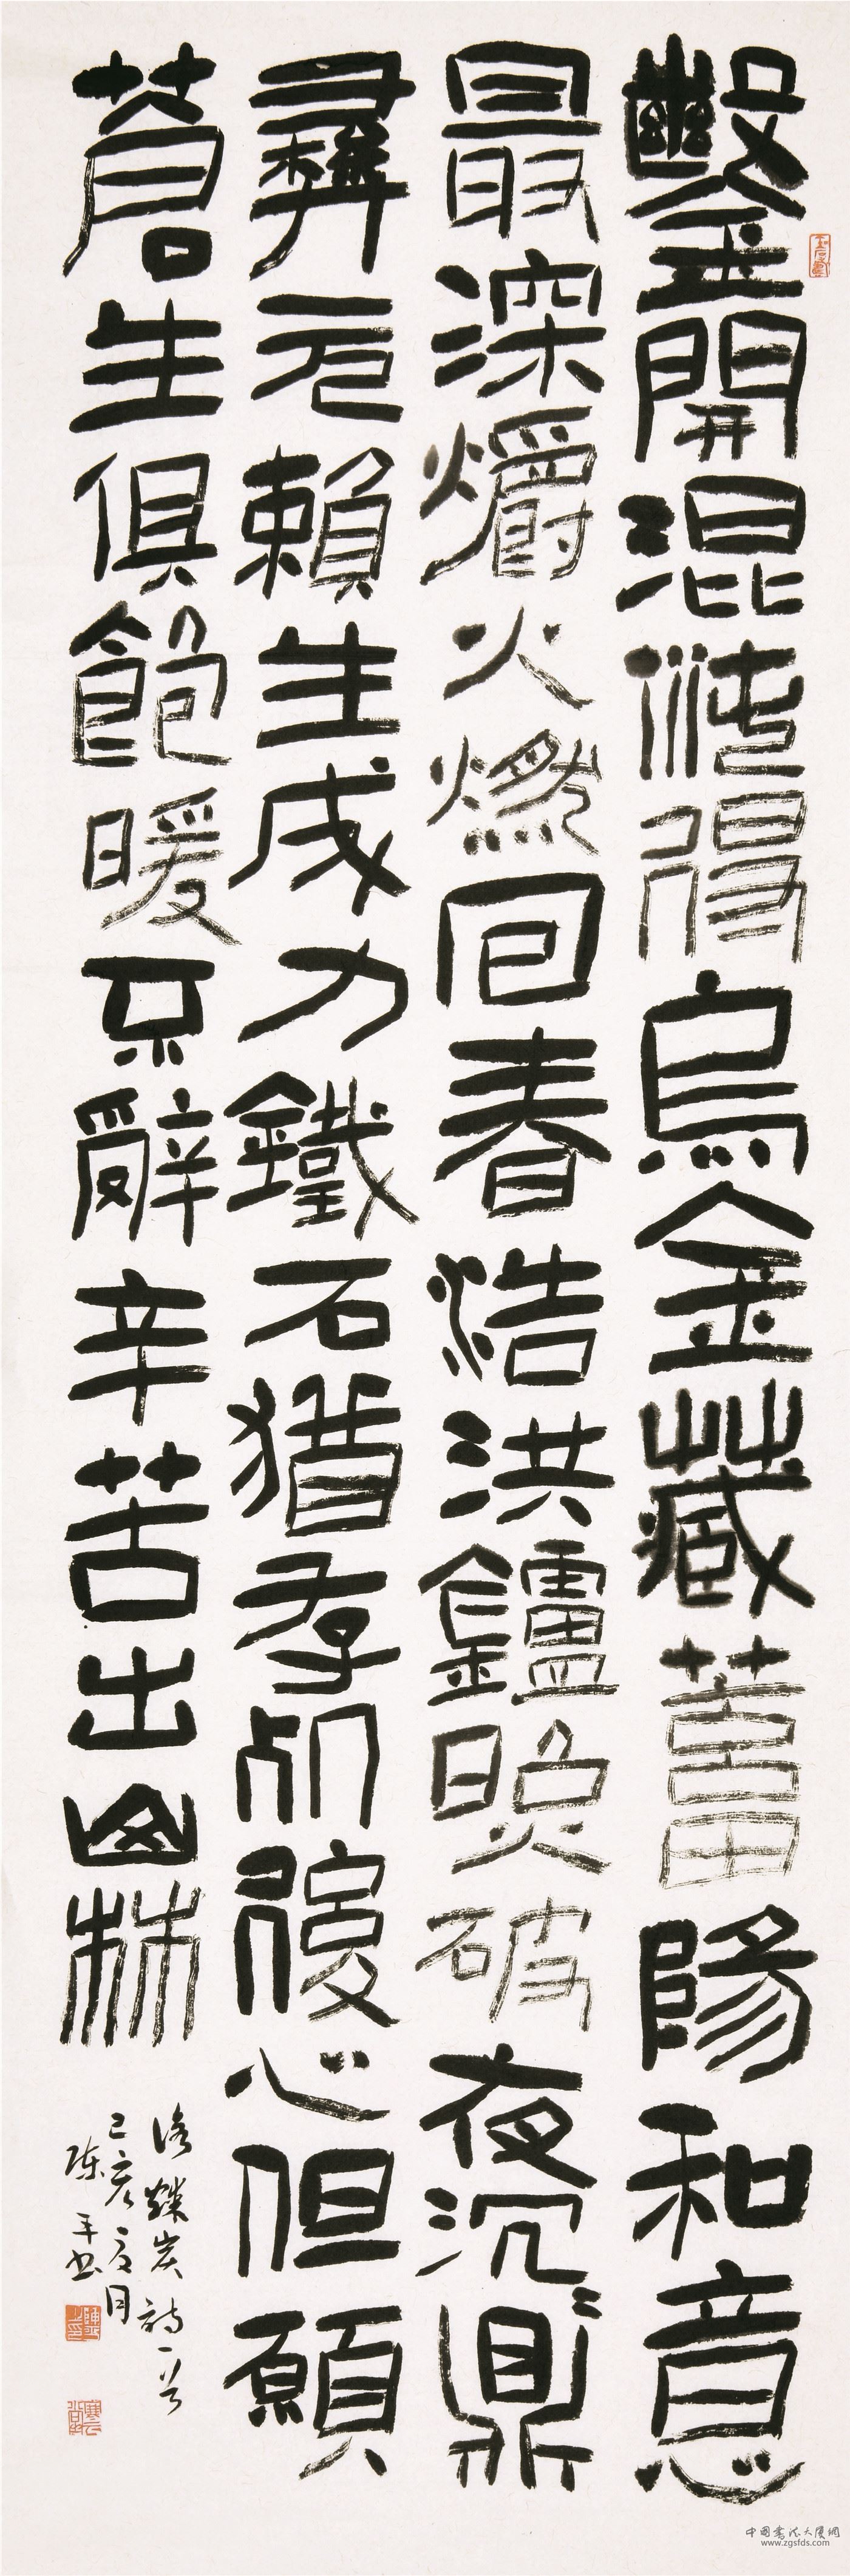 鑿開混沌得烏金藏蓄陽和意
最深爝火燃回春浩洪鑪照破夜沉〻鼎
彝元賴生成力鐵石猶存死後心但願
蒼生俱飽暖不辭辛苦出山林
詠煤炭詩一首
己亥夏月
陳平書
中國書法大厦網
www.zgsfds.com